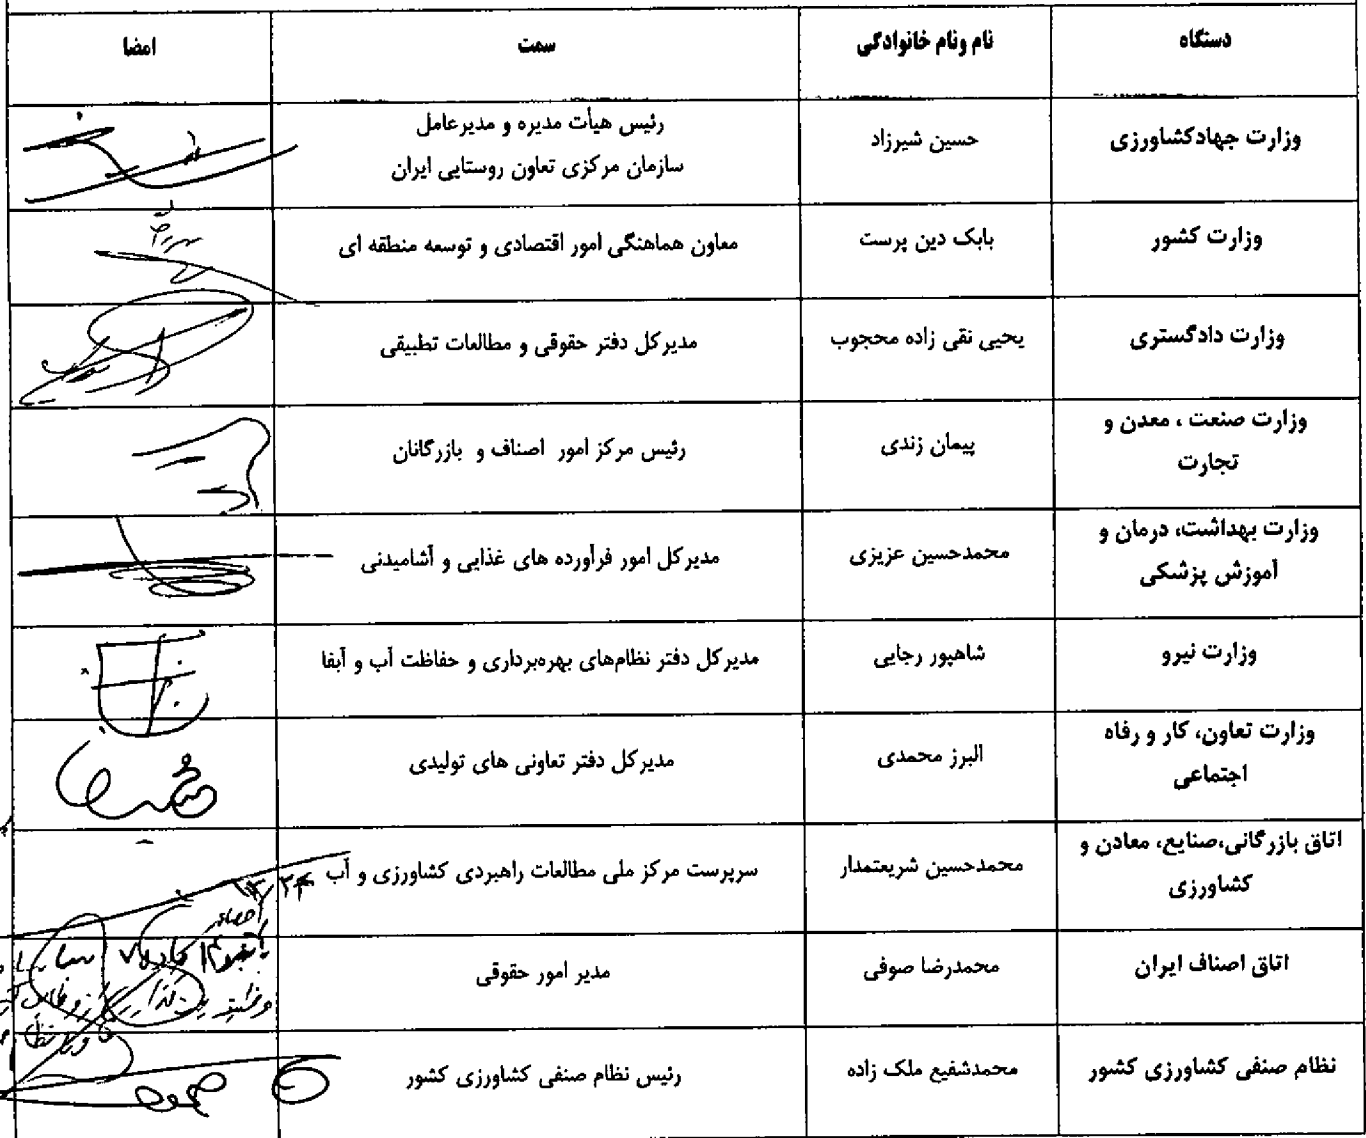 دستگاه
نام ونام خانوادگی
سمت
امضا
وزارت جهادکشاورزی
حسین شیرزاد
رئیس هیأت مدیره و مدیرعامل
سازمان مرکزی تعاون روستایی ایران
وزارت کشور
بابک دین پرست
معاون هماهنگی امور اقتصادی و توسعه منطقه ای
وزارت دادگستری
یحیی نقی زاده محجوب
مدیرکل دفتر حقوقی و مطالعات تطبیقی
وزارت صنعت ، معدن و
تجارت
پیمان زندی
رئیس مرکز امور اصناف و بازرگانان
وزارت بهداشت، درمان و
آموزش پزشکی
محمدحسین عزیزی
مدیرکل امور فرآورده های غذایی و آشامیدنی
وزارت نیرو
شاهپور رجایی
مدیرکل دفتر نظام‌های بهره‌برداری و حفاظت آب و آبفا
وزارت تعاون، کار و رفاه
اجتماعی
البرز محمدی
مدیرکل دفتر تعاونی های تولیدی
اتاق بازرگانی،صنایع، معادن و
کشاورزی
محمدحسین شریعتمدار
سرپرست مرکز ملی مطالعات راهبردی کشاورزی و آب
اتاق اصناف ایران
محمدرضا صوفی
مدیر امور حقوقی
نظام صنفی کشاورزی کشور
محمدشفیع ملک زاده
رئیس نظام صنفی کشاورزی کشور